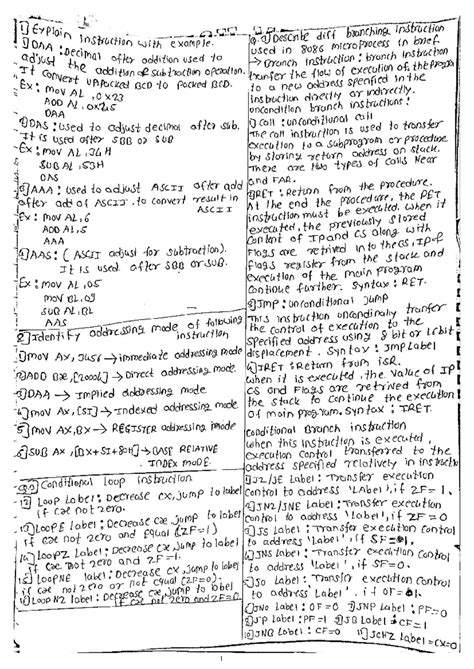 1) Explain instruction with example.
1) DAA : Decimal after addition used to
adjust the addition & subtraction operation.
It convert UPPacked BCD to Packed BCD.
Ex : mov AL, 0x23
ADD AL, 0x25
DAA
2) DAS : used to adjust decimal after sub.
It is used after SBB or SUB
Ex : mov AL, 34H
SUB AL, 53H
DAS
3) AAA : used to adjust ASCII after add
after add of ASCII. to convert result in
ASCII
Ex : mov AL, 6
ADD AL, 5
AAA
4) AAS : (ASCII adjust for subtraction).
It is used after SBB or SUB.
Ex : mov AL, 05
mov BL, 09
SUB AL, BL
AAS
2) Identify addressing mode of following
instruction
1) mov AX, → immediate addressing mode
2) ADD → Direct addressing mode
3) DAA → Implied addressing mode
4) mov AX, [SI] → Indexed addressing mode
5) mov AX, BX → REGISTER addressing mode
6) SUB AX, [BX+SI+80H] → BASE RELATIVE
INDEX MODE.
Conditional loop instruction
Loop Label : Decrease cx, jump to label
if cx not zero.
LOOPE Label : Decrease cx, jump to label
if cx not zero and Equal (ZF=1)
LOOPZ Label : Decrease cx, jump to label
if cx not zero and ZF=1.
LOOPNE label : Decrease cx, jump to label
if cx not zero or not equal (ZF=0).
Loop NZ label : Decrease cx, jump to label
if cx not zero and ZF=0
Describe diff branching instruction
used in 8086 microprocess in brief.
→ Branch instruction : branch instruction
tranfer the flow of execution of the Program
to a new address specified in the
instruction directly or indirectly.
uncondition branch instructions :
1) call : unconditional call
The call instruction is used to transfer
execution to a subprogram or procedure
by storing return address on stack.
There are two types of calls Near
and FAR.
2) RET : Return from the procedure.
At the end the procedure, the RET
instruction must be executed. when it
executed, the previously stored
content of IP and CS along with
Flags are retrived into the CS, IP &
flags register from the stack and
execution of the main program
continue further. Syntax : RET.
3) JMP : unconditional Jump
This instruction unconditionaly tranfer
the control of execution to the
specified address using 8 bit or 16 bit
displacement. Syntax : Jmp Label
4) IRET : Return from ISR.
when it is executed, the value of IP
CS and Flags are retrived from
the stack to continue the execution
of main program. Syntax : IRET.
conditional Branch instruction
when this instruction is executed,
execution control transferred to the
address specified relatively in instructio
1) JZ/JE Label : Transfer execution
control to address 'Label', if ZF=1.
2) JNZ/JNE Label : Transfer execution
control to address 'label', if ZF=0
3) JS Label : Transfer execution control
to address 'Label', if SF=1.
4) JNS label : Transfer execution control
to address 'label', if SF=0.
5) JO Label : Transfer execution control
to address 'label', if OF=1.
JNO label : OF=0 JNP label : PF=0
JP label : PF=1 JB label : CF=1
JNB label : CF=0 JCXZ label = CX=0
1